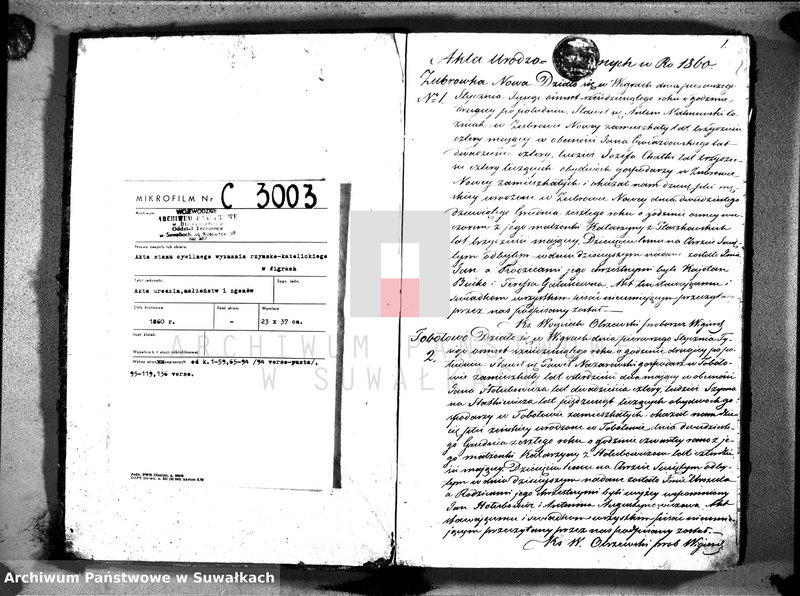 MIKROFILM Nr C 3003
Archiwum
WOJEWÓDZKIE
ARCHIWUM PAŃSTWOWE
w Białymstoku
Oddział Terenowy
w Suwałkach, ul. Kościuszki 69
Nazwa zespołu lub zbioru
Akta stanu cywilnego wyznania rzymsko-katolickiego
w Wigrach
Tytuł jednostki
Sygn. jedn.
Akta urodzin, małżeństw i zgonów
Daty krańcowe
Ilość stron
Wymiary
1860 r.
-
23 x 37 cm.
Ilość klatek
Wypełnia k-t ilość mikrofilmowanej
od k.1-59,65-94 /94 verso-pusta/,
95-119,134 verso.
1.
Akta Urodzonych w Ro. 1860
Zubrówka Nowa Działo się w Wigrach dnia pierwszego
No 1. Stycznia Tysiąc ośmset sześćdziesiątego roku o godzinie
drugiej po południu. Stawił się Antoni
w Zubrowce Nowej zamieszkały lat trzydzieści
cztery mający w obecności Jana Gwiazdowskiego lat
dwadzieścia cztery, tudzież Józefa lat trzydzie-
ści cztery liczących obydwóch gospodarzy w Zubrowce
Nowej zamieszkałych i okazał nam dziecię płci mę-
skiej urodzone w Zubrowce Nowej dnia dwudziestego
dziewiątego Grudnia zeszłego roku o godzinie ósmej wie-
czorem z jego małżonki Katarzyny z
lat trzydzieści mającej. Dziecięciu temu na Chrzcie Świę-
tym odbytym w dniu dzisiejszym nadane zostało Imie
Jan a Rodzicami jego chrzestnymi byli Kajetan
Butko i Teresa. Akt ten stawającemu i
świadkom wszystkim pisać nieumiejącym przeczytany
przez nas podpisany został
Ks. Wojciech Olszewski proboszcz Wigierski
Tobołowo Działo się w Wigrach dnia pierwszego Stycznia Ty-
2. siąc ośmset sześćdziesiątego roku o godzinie drugiej po po-
łudniu. Stawił się Paweł Nazarewski gospodarz w Toboło-
wie zamieszkały lat czterdzieści dwa mający w obecności
Jana Hołubowicza lat dwadzieścia cztery, tudzież Szymo-
na lat pięćdziesiąt liczących obydwóch go-
spodarzy w Tobołowie zamieszkałych i okazał nam dzie-
cię płci żeńskiej urodzone w Tobołowie dnia dwudzieste-
go Grudnia zeszłego roku o godzinie czwartej rano z je-
go małżonki Katarzyny z Hołubowiczów lat czterdzie-
ści mającej. Dziecięciu temu na Chrzcie Świętym odby-
tym w dniu dzisiejszym nadane zostało Imie Urszula
a Rodzicami jego chrzestnymi byli wyżej wspomniony
Jan Hołubowicz i Antonina Augustynowiczowa. Akt
stawającemu i świadkom wszystkim pisać nieumie-
jącym przeczytany przez nas podpisany został
Ks W. Olszewski prob Wigierski
ARCHIWUM PAŃSTWOWE
W SUWAŁKACH
Archiwum Państwowe w Suwałkach